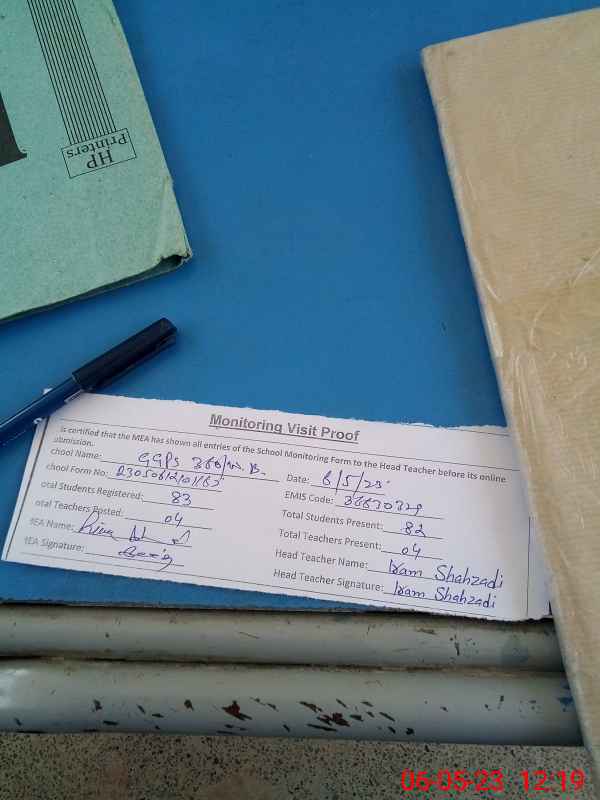 HP
Printers
Monitoring Visit Proof
is certified that the MEA has shown all entries of the School Monitoring Form to the Head Teacher before its online
ubmission.
chool Name: GGPS
Date: 6/5/23
chool Form No:
EMIS Code:
otal Students Registered: 83
Total Students Present: 82
otal Teachers Posted: 04
Total Teachers Present: 04
MEA Name:
Head Teacher Name: Iram Shahzadi
MEA Signature:
Head Teacher Signature: Iram Shahzadi
06-05-23 12:19